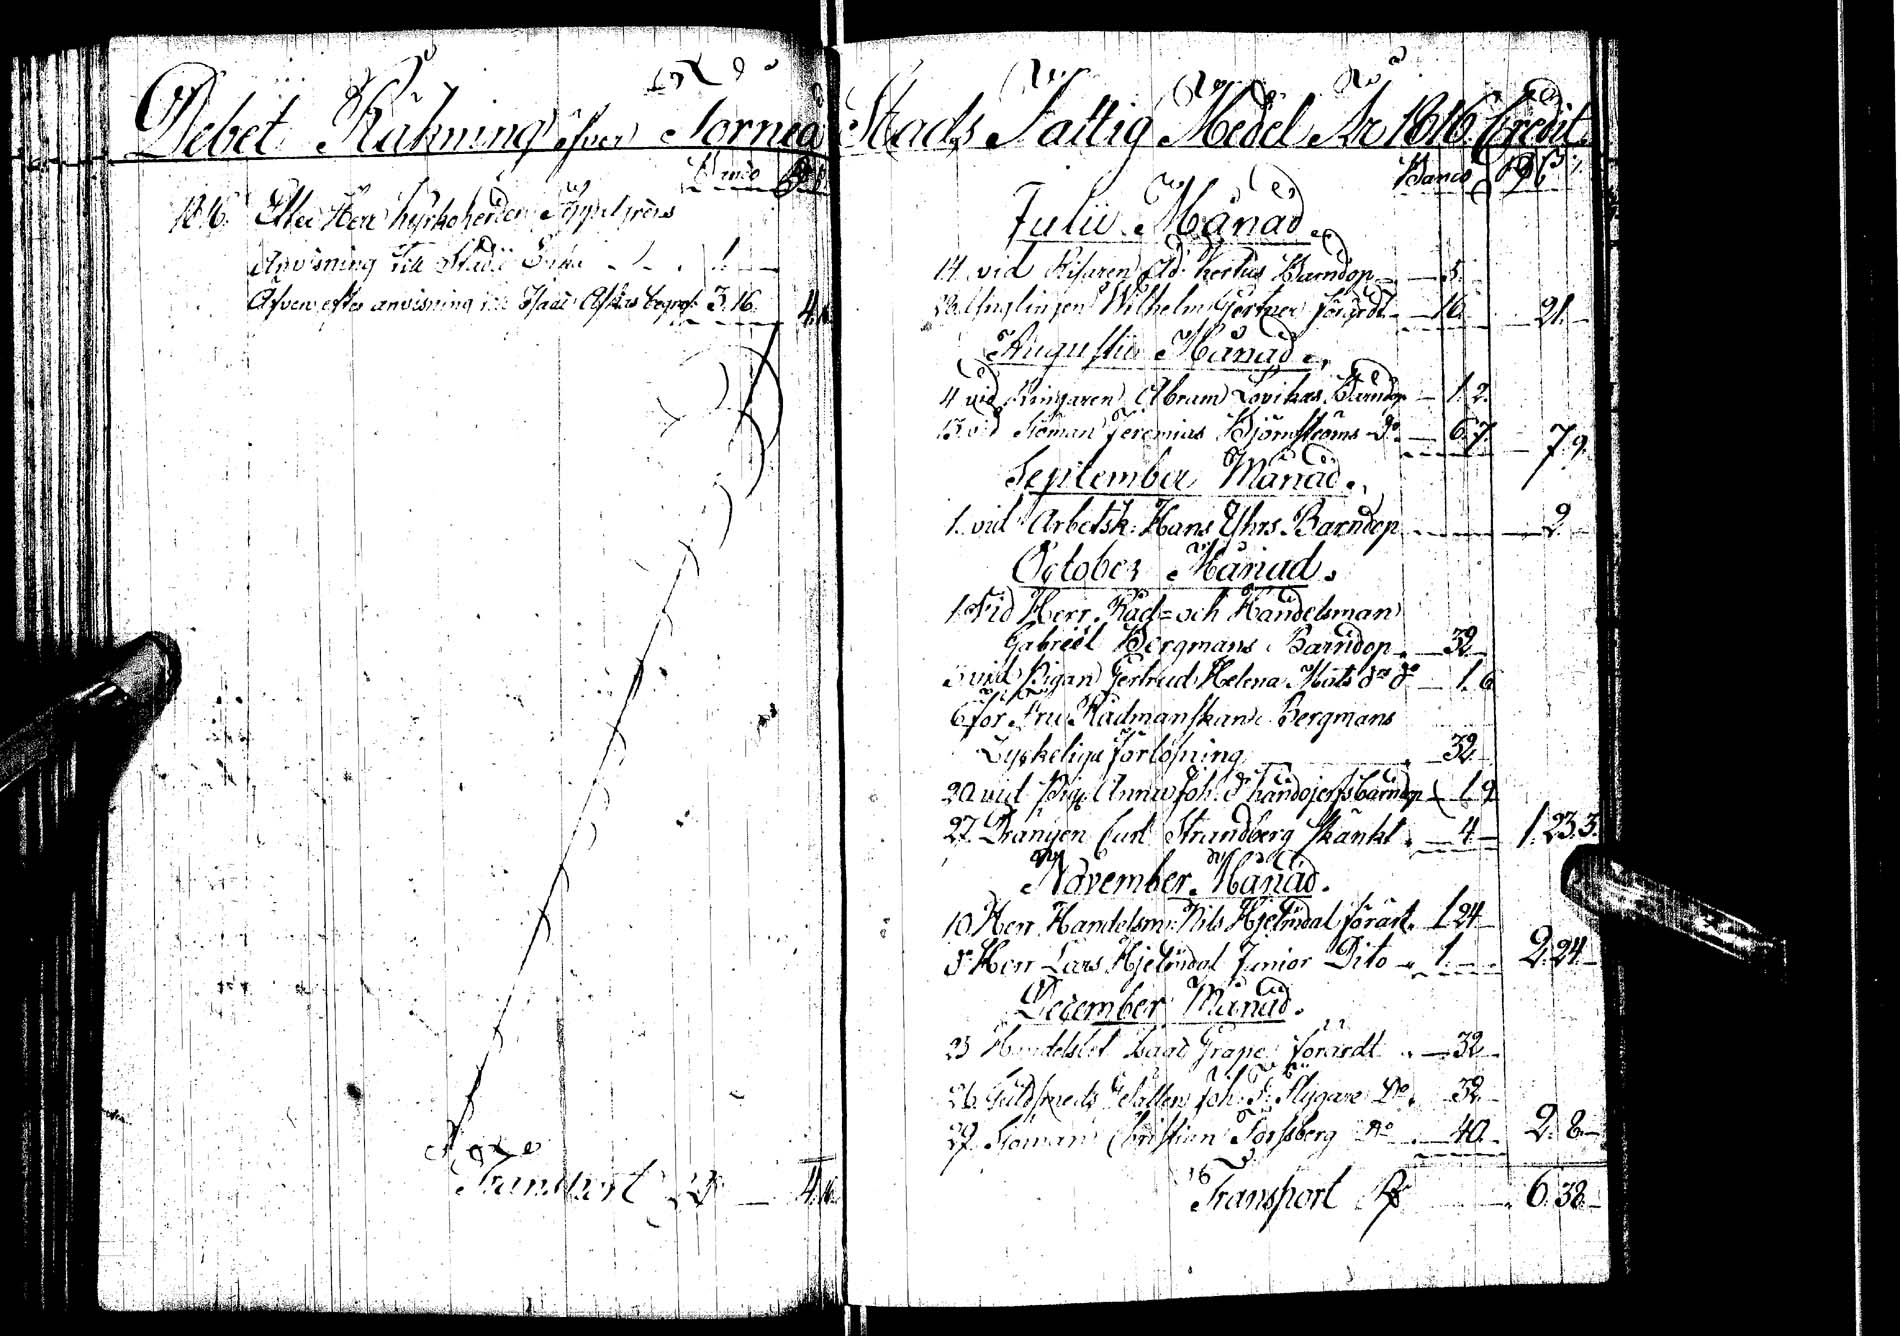 Debet Räkning öfver Torneå
Banco
1816. Efter Herr Kyrkoherden
Anvisning till 1.
Äfven efter anvisning till Isaac begrafn: 3.16. 4.16
Transport Rd 4.16
Stads Fattig Medel År 1816. Credit.
Banco
Julii Månad.
14. vid Ad: Kortus Barndop 5.
Ynglingen Wilhelm Gertner förärdt 16. 21.
Augustii Månad.
4 vid Ringaren Abram Lovikas Barndop 1.2.
vid Sjöman Jeremias Björnströms do 6.7. 7.9.
September Månad.
1. vid Arbetsk: Hans Yhrs Barndop 2.
October Månad.
1. Vid Herr Råd- och Handelsman
Gabriel Bergmans Barndop 32.
vid Pigan Gertrud Helena Mats dr do 1.6
6 för Fru Rådmanskan Bergmans
Lyckeliga förlösning 32.
20 vid Pig. Anna Joh. Dr barndop 1.9
27. Drängen Carl Strandberg skänkt 4. 1.23.3.
November Månad.
10 Herr Handelsm: Nils Hjelmdal förärt 1.24
do Herr Lars Hjelmdal Junior Dito 1. 2.24.
December Månad.
25 Isaac Grape förärdt 32.
26. Guldsmeds Gesällen Joh: Flygare Do 32.
29. Sjöman Christian Forssberg Do 40. 2.8.
Transport Rd 6.38.